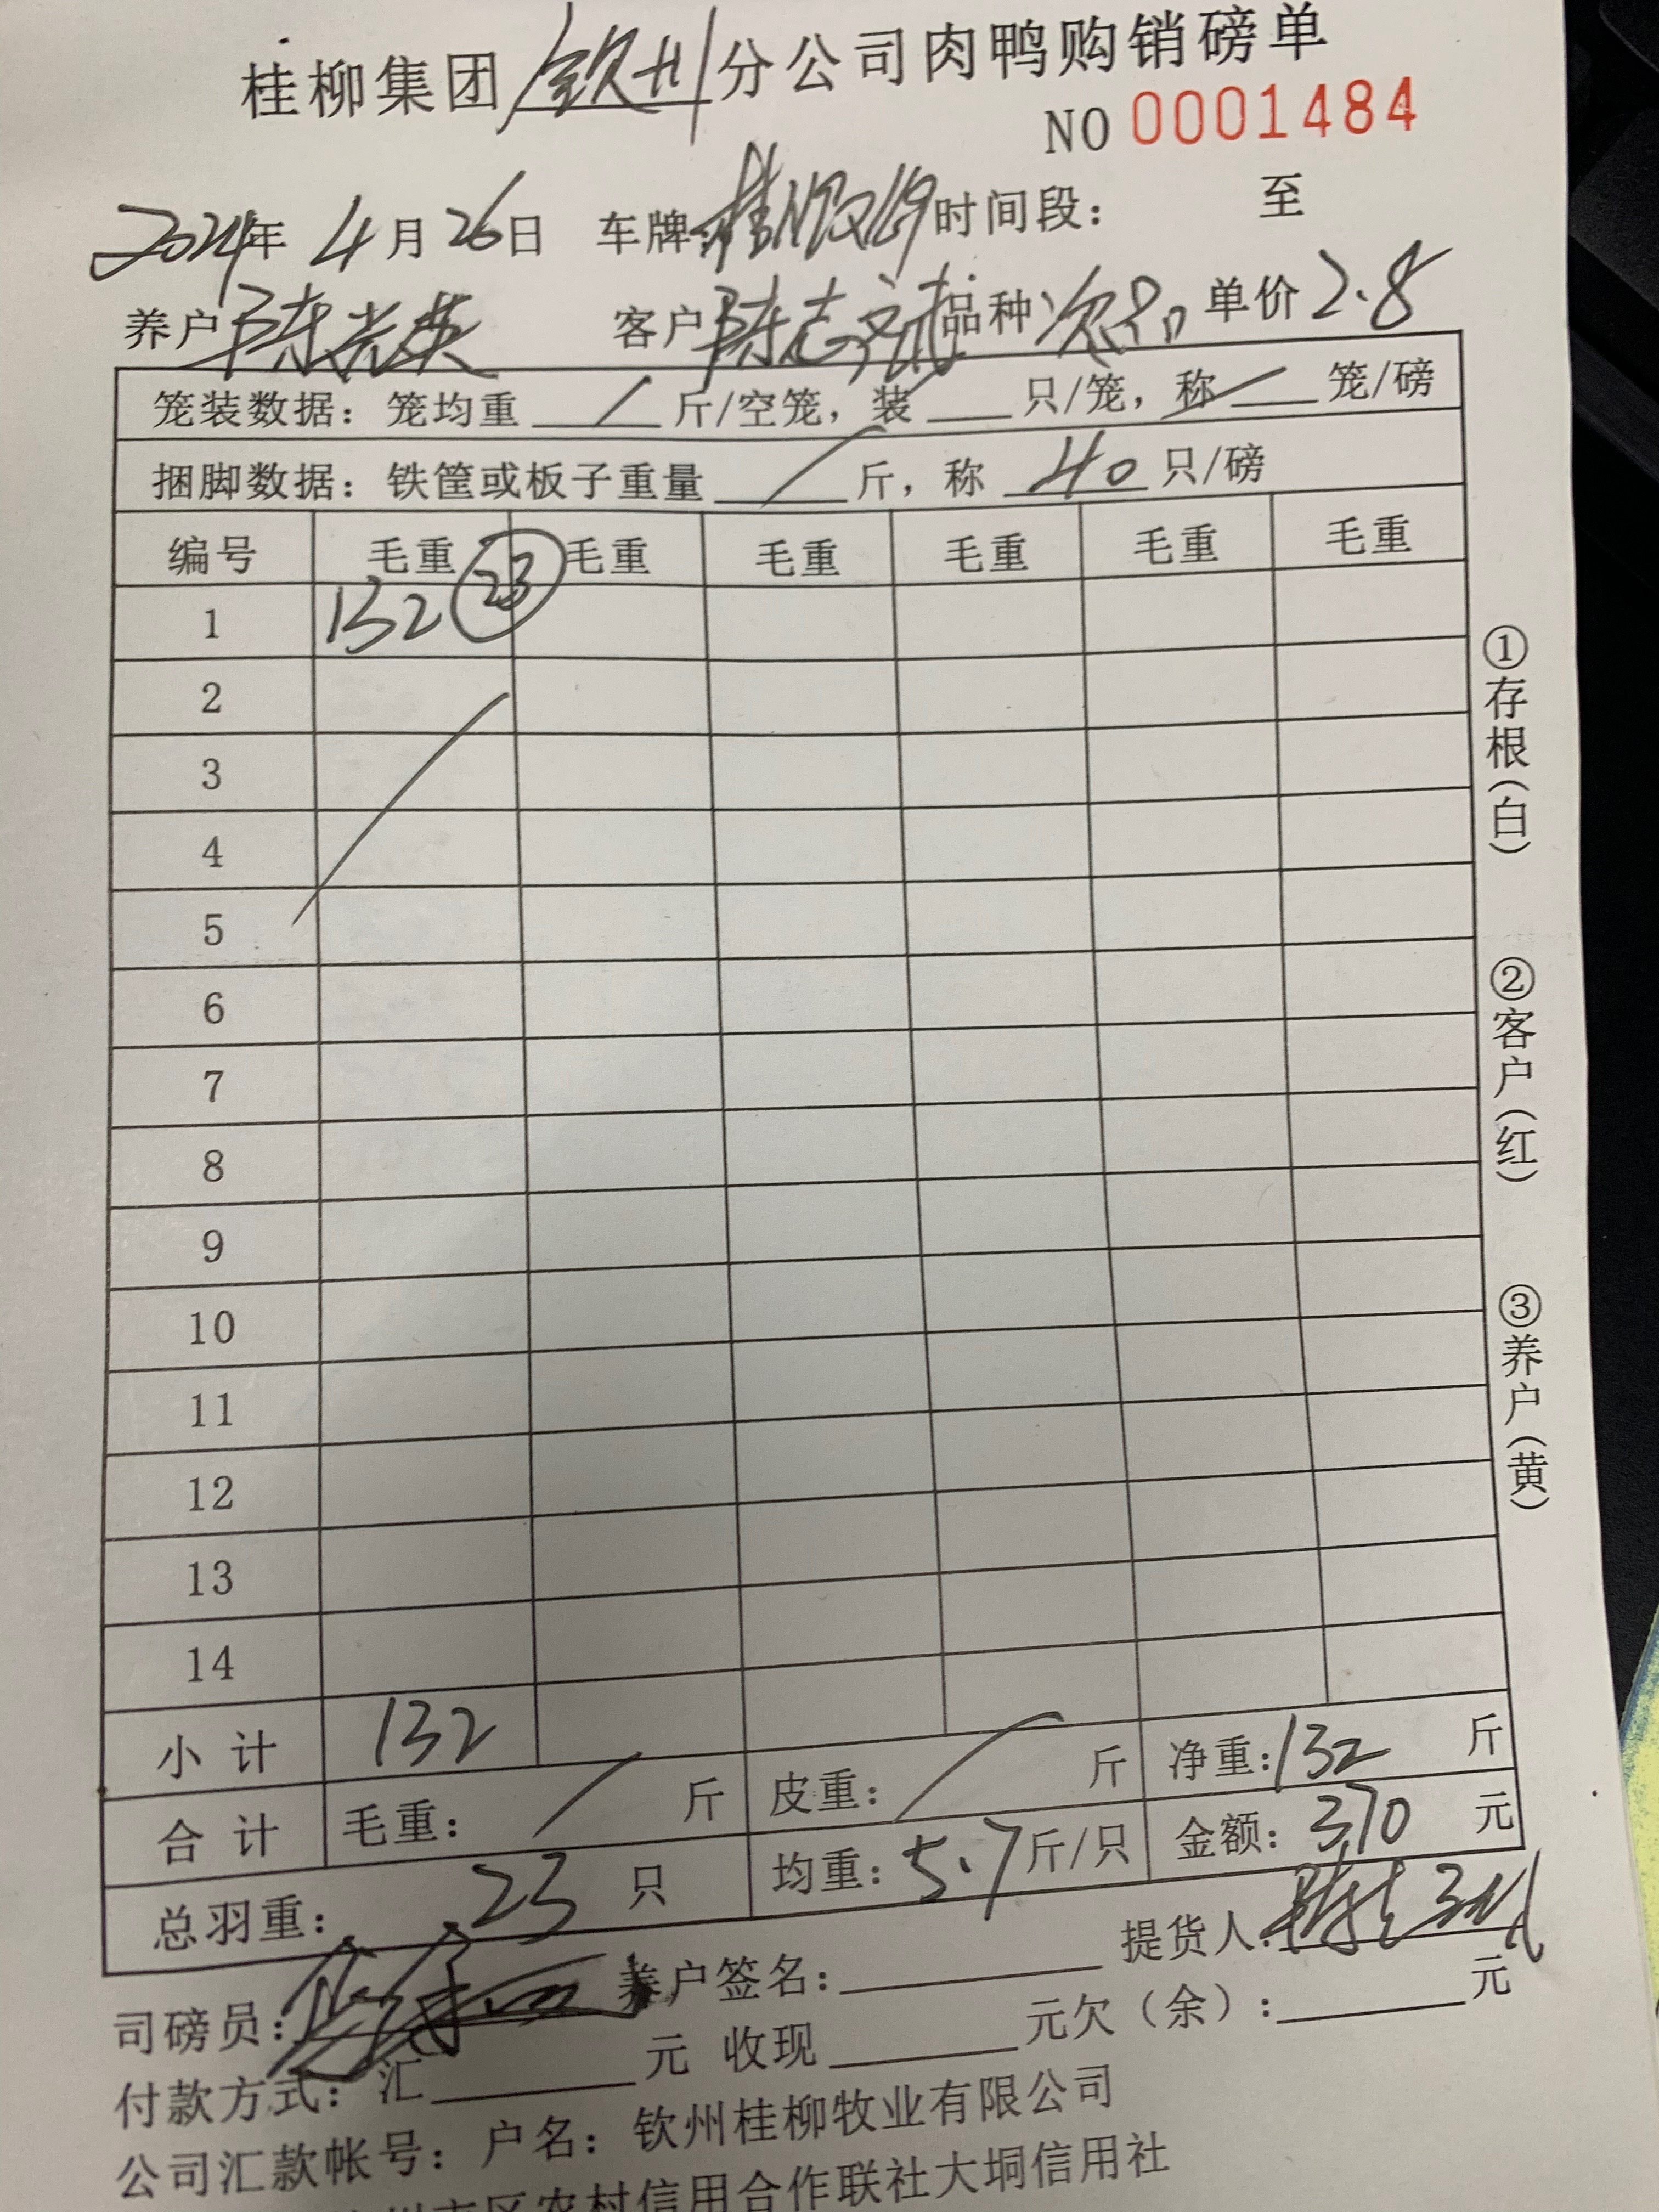 桂柳集团 钦州 分公司肉鸭购销磅单
NO 0001484
2024年 4月 26日 车牌: 时间段: 至
养户 陈光英 客户 陈志斌 品种 次品 单价 2.8
笼装数据: 笼均重 / 斤/空笼, 装 / 只/笼, 称 / 笼/磅
捆脚数据: 铁筐或板子重量 / 斤, 称 40 只/磅
编号 毛重 毛重 毛重 毛重 毛重 毛重
1 132 23
2
3
4
5
6
7
8
9
10
11
12
13
14
小计 132
合计 毛重: / 斤 皮重: / 斤 净重: 132 斤
总羽重: 23 只 均重: 5.7 斤/只 金额: 370 元
司磅员: 养户签名: 提货人:
付款方式: 汇 元 收现 元欠(余): 元
公司汇款帐号: 户名: 钦州桂柳牧业有限公司
州市区农村信用合作联社大垌信用社
①存根(白)
②客户(红)
③养户(黄)